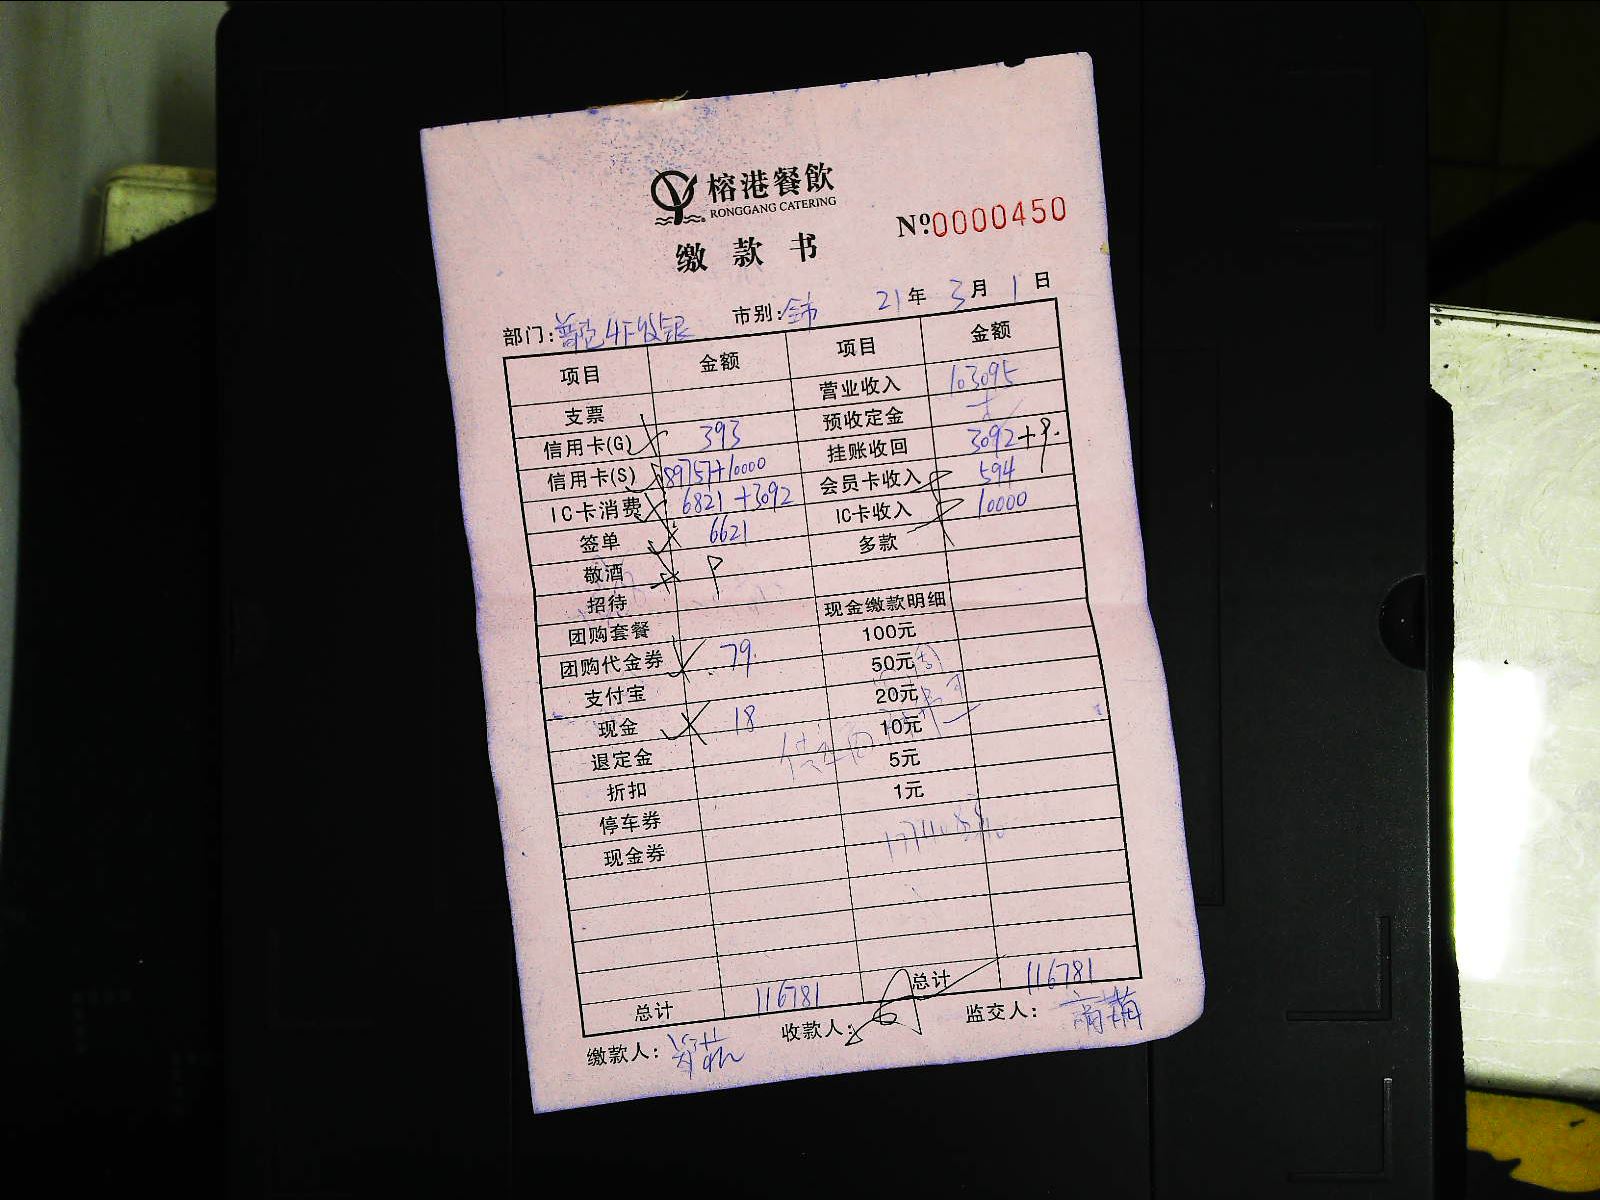 榕港餐飲
RONGGANG CATERING
缴款书
Nº0000450
部门: 市别: 21年3月1日
项目 金额 项目 金额
支票 营业收入 103095
信用卡(G) 393 预收定金
信用卡(S) 89757+10000 挂账收回 3092+P.
IC卡消费 6821+3092 会员卡收入 594
签单 6621 IC卡收入 10000
敬酒 P 多款
招待
团购套餐 现金缴款明细
团购代金券 79. 100元
支付宝 50元
现金 18 20元
退定金 10元
折扣 5元
停车券 1元
现金券
总计 116781 总计 116781
缴款人: 收款人: 监交人: